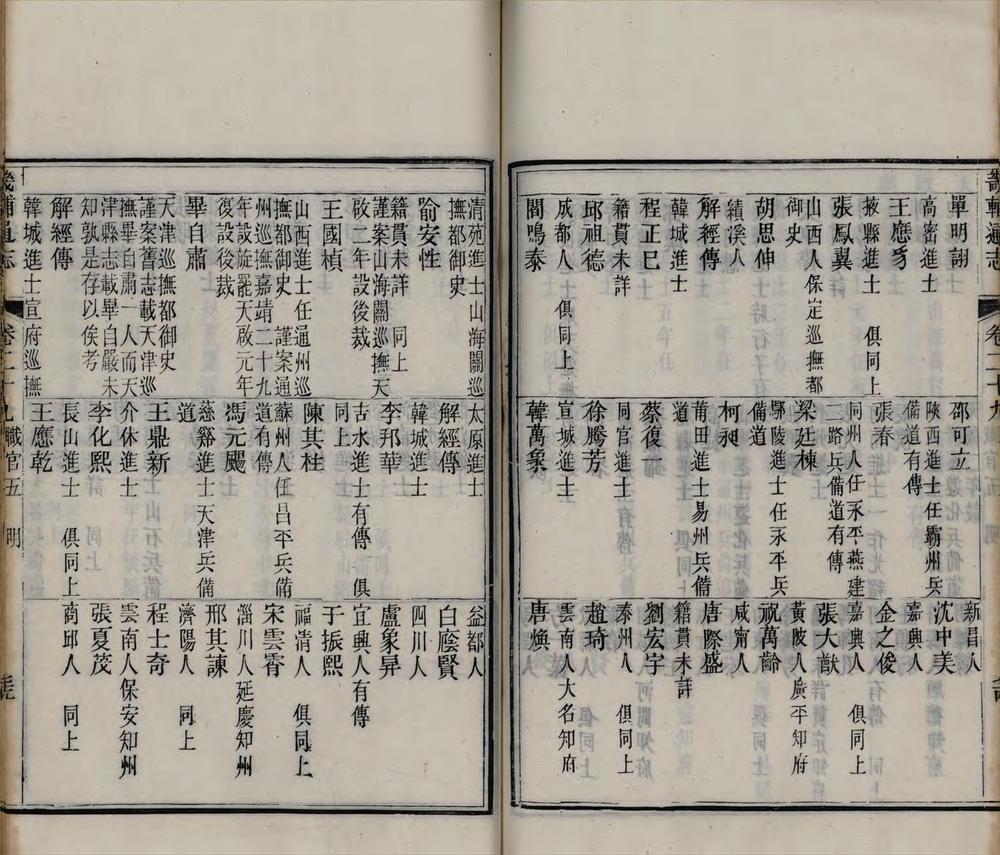 畿輔通志 卷二十九
單明詡
高密進士
王應豸
掖縣進士 俱同上
張鳳翼
山西人保定巡撫都
御史
胡思伸
績溪人
解經傳
韓城進士
程正巳
籍貫未詳 同上
邱祖德
成都人 俱同上
閻鳴泰
邵可立
陝西進士任霸州兵
備道有傳
張春
同州人任永平燕建
二路兵備道有傳
梁廷棟
鄢陵進士任永平兵
備道
柯昶
莆田進士易州兵備
道
蔡復一
同官進士
徐騰芳
宣城進士
韓萬象
新昌人
沈中美
嘉興人
金之俊
嘉興人 俱同上
張大猷
黃陂人廣平知府
祝萬齡
咸甯人
唐際盛
籍貫未詳
劉宏宇
泰州人 俱同上
趙琦
雲南人大名知府
唐煥
清苑進士山海關巡
撫都御史
喻安性
籍貫未詳 同上
謹案山海關巡撫天
啟二年設後裁
王國楨
山西進士任通州巡
撫都御史 謹案通
州巡撫嘉靖二十九
年設旋罷天啟元年
復設後裁
畢自肅
天津巡撫都御史
謹案舊志載天津巡
撫畢自肅一人而天
津縣志載畢自嚴未
知孰是存以俟考
解經傳
韓城進士宣府巡撫
太原進士
解經傳
韓城進士
李邦華
古水進士有傳 俱
同上
陳其柱
蘇州人任昌平兵備
道有傳
馮元颺
慈谿進士天津兵備
道
王鼎新
介休進士
李化熙
長山進士 俱同上
王應乾
益都人
白廕賢
四川人
盧象昇
宜興人有傳
于振熙
福清人 俱同上
宋雲霄
淄川人延慶知州
邢其諫
濟陽人 同上
程士奇
雲南人保安知州
張夏茂
商邱人 同上
畿輔通志 卷二十九 職官五 明